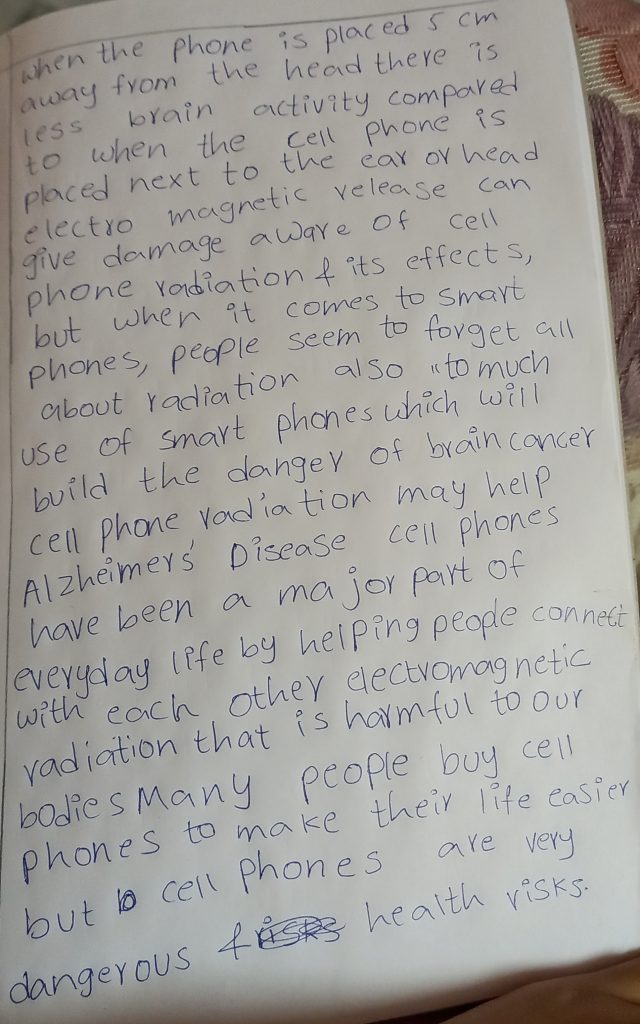 when the phone is placed 5 cm
away from the head there is
less brain activity compared
to when the cell phone is
placed next to the ear or head
electro magnetic release can
give damage aware of cell
phone radiation & its effects,
but when it comes to smart
phones, people seem to forget all
about radiation also "to much
use of smart phones which will
build the danger of brain cancer
cell phone radiation may help
Alzheimers' Disease cell phones
have been a major part of
everyday life by helping people connect
with each other electromagnetic
radiation that is harmful to our
bodies Many people buy cell
phones to make their life easier
but cell phones are very
dangerous & health risks.